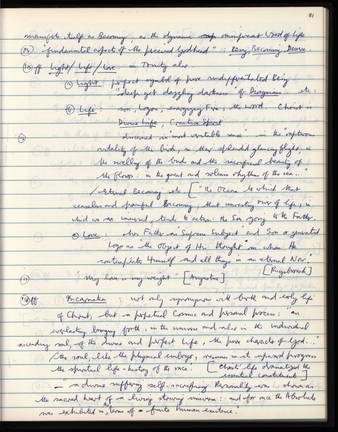 81
manifests itself as Becoming, as the dynamic omnipresent Word of life
"fundamental aspect of the perceived Godhead" : Being, Becoming, Desire.
ff Light / Life / Love — Trinity also
① Light : perfect symbol of pure undifferentiated Being
"deep yet dazzling darkness" of Dionysius etc.
② Life : son, logos, energizing Fire, the Word. Christ is
Divine Life, Creative Spirit
discerned in "most veritable wise" in the rapturous
vitality of the birds, in their splendid glancing flight, in
the swelling of the buds and the sacrificial beauty of
the flowers: in the great and solemn rhythm of the sea..."
/ eternal Becoming etc ["the Ocean to which that
ceaseless and painful Becoming, that unresting river of life, in
which we are immersed, tends to return: the Son going to the Father.
③ Love : also Father as "Supreme Subject" and Son as generated
Logos as "the object of His thought" in whom He
contemplates Himself and all things in an eternal Now"
[Ruysbroeck]
"My love is my weight" [Augustine]
ff. Incarnation : not only synonymous with birth and early life
of Christ, but "a perpetual Cosmic and personal process: an
everlasting bringing forth, in the universe and also in the individual
ascending soul, of the divine and perfect Life, the pure character of God..."
/ the soul, like the physical embryo, resumes in its upward progress
the spiritual life-history of the race. [Christ life dramatized the
essential constituent]
— a divine suffering self-sacrificing Personality was shown as
the sacred heart of a living striving universe: and for once the Absolute
was exhibited in terms of a finite human existence."